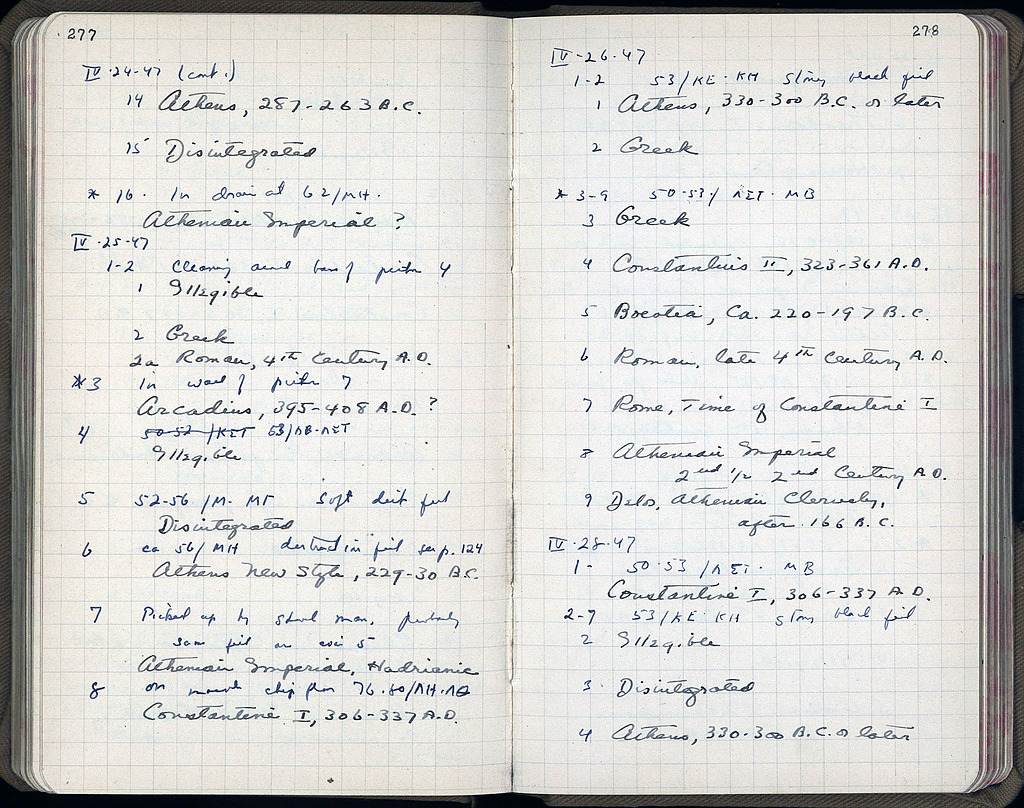 277
IV-24-47 (cont.)
14 Athens, 287-263 B.C.
15 Disintegrated
* 16. In drain at 62/ΜΗ.
Athenian Imperial ?
IV-25-47
1-2 Cleaning around base of pithos 4
1 Illegible
2 Greek
2a Roman, 4th Century A.D.
*3 In wall of pithos 7
Arcadius, 395-408 A.D. ?
4 50-52/ΚΣΤ 53/ΛΒ-ΛΣΤ
Illegible
5 52-56/Μ-ΜΓ Soft dark fill
Disintegrated
6 ca 56/ΜΗ destruction fill see p. 124
Athens New Style, 229-30 B.C.
7 Picked up by shovel man, probably
same fill as coin 5
Athenian Imperial, Hadrianic
8 on marble chip from 76-80/ΛΗ-ΛΘ
Constantine I, 306-337 A.D.
278
IV-26-47
1-2 53/ΚΕ-ΚΗ stony black fill
1 Athens, 330-300 B.C. or later
2 Greek
* 3-9 50-53/ΛΣΤ-ΜΒ
3 Greek
4 Constantius II, 323-361 A.D.
5 Boeotia, Ca. 220-197 B.C.
6 Roman, late 4th Century A.D.
7 Rome, Time of Constantine I
8 Athenian Imperial
2nd 1/2 2nd Century A.D.
9 Delos, Athenian Cleruchy,
after 166 B.C.
IV-28-47
1- 50-53/ΛΣΤ-ΜΒ
Constantine I, 306-337 A.D.
2-7 53/ΚΕ-ΚΗ stony black fill
2 Illegible
3. Disintegrated
4 Athens, 330-300 B.C. or later